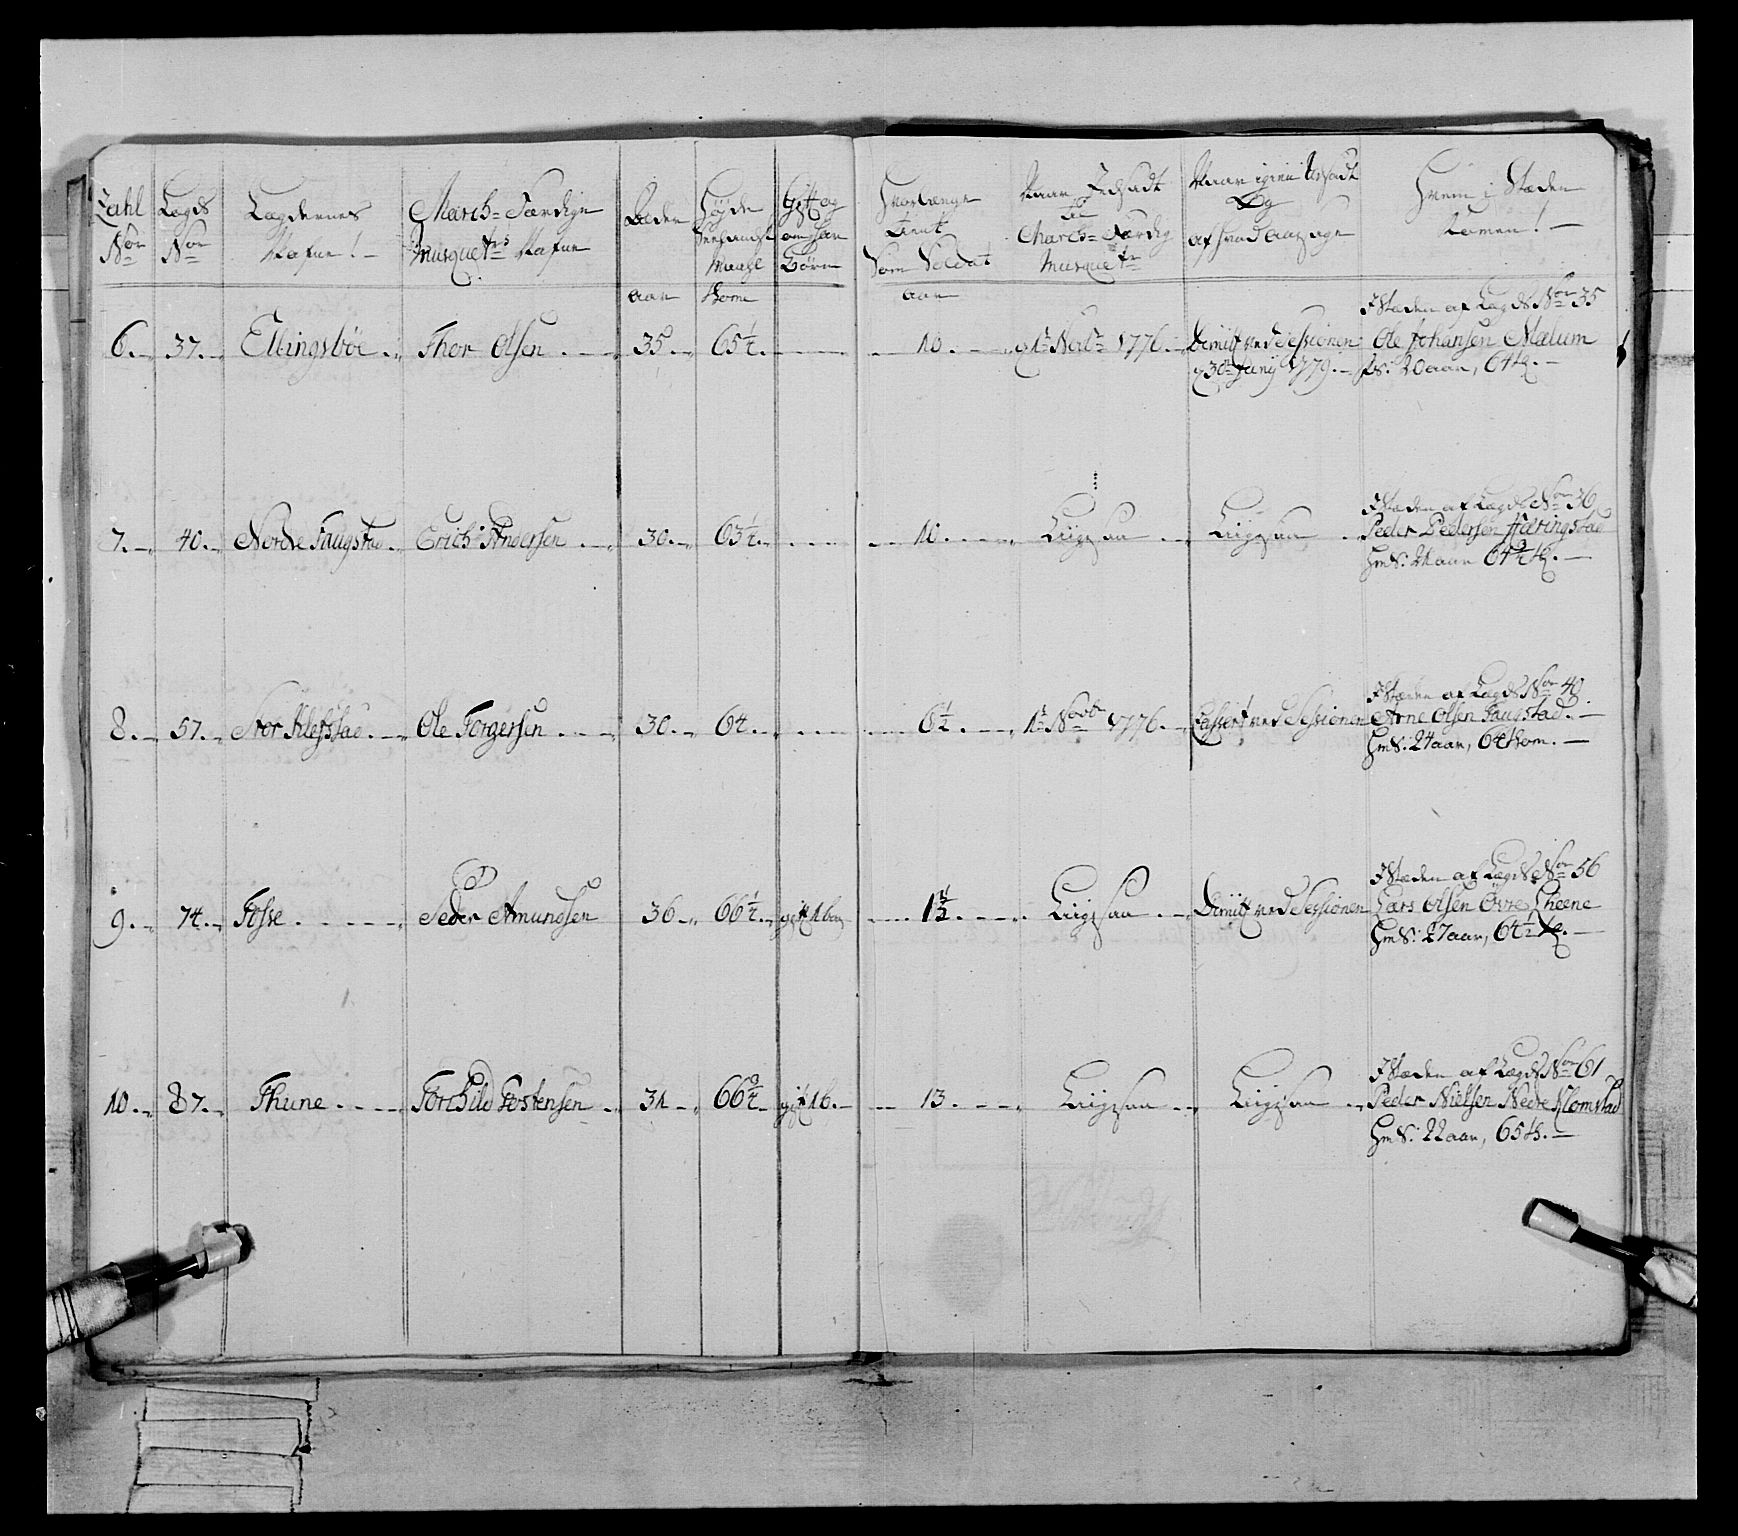 Zahl Nor
Lægds Nor
Lægdernes Nafne!
March-Færdige Musquetrs Nafne
Alder
Høyde Seelandsk Maahl
Gift og om har Børn
Hvorlænge Tient Som Soldat
Naar Indsadt til March-Færdig Musquetr
Naar igien Udsadt Og af hvad aarsage
Hvem i Stæden Kommen!
aar tomr aar
6. 37. Ellingsböe. Thor Olsen 35. 65 1/4. 10. 1te Novbr 1776. Dimitt ved Sessionen 30te Junij 1779.
I Stæden af Lægds Nor 35
Ole Johansen Mælum
20 aar, 64 t.
7. 40. Nordre Faugstad. Erich Andersen 30. 63 1/4. 10. Ligesaa Ligesaa
I Stæden af Lægds Nor 36
Peder Pedersen Hæringstad
21 aar 64 3/4 t.
8. 57. Stor Klefstad. Ole Torgersen 30. 64. 6 1/2. 1te Novbr 1776. Cassert ved Sessionen
I Stæden af Lægds Nor 40
Arne Olsen Faugstad.
24 aar, 64 tom.
9. 74. Fosse. Peder Amundsen 36. 66 1/4. gift 1 b. Ligesaa Dimitt ved Sessionen
I Stæden af Lægds Nor 56
Lars Olsen Övre Sheene
27 aar, 64 1/2 t.
10. 87. Thune. Torchild Tostensen 31. 66 2/4. gift 1 b. 13. Ligesaa Ligesaa
I Stæden af Lægds Nor 61
Peder Nielsen Nedre Klomstad
22 aar, 65 t.